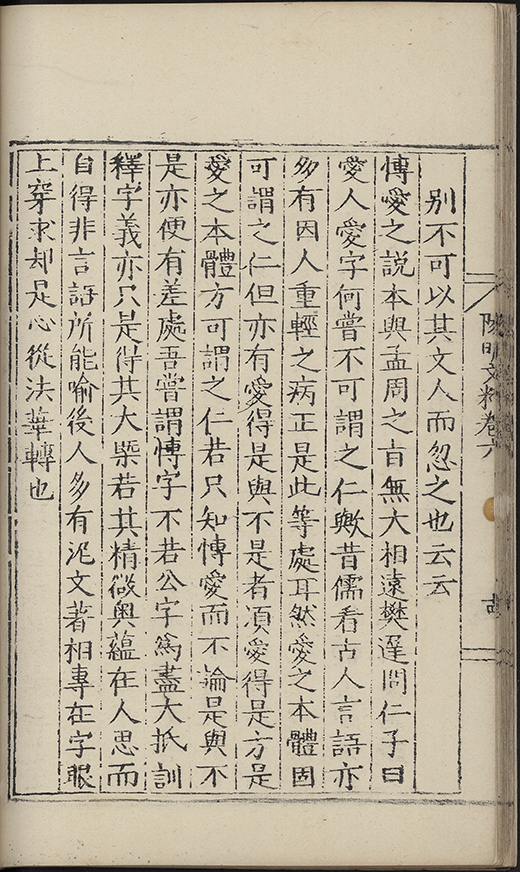 陽明文粹卷六
别不可以其文人而忽之也云云
愽愛之説本與孟周之㫖無大相遠樊遲問仁子曰
愛人愛字何嘗不可謂之仁歟昔儒看古人言語亦
多有因人重輕之病正是此等處耳然愛之本體固
可謂之仁但亦有愛得是與不是者須愛得是方是
愛之本體方可謂之仁若只知愽愛而不論是與不
是亦便有差處吾嘗謂愽字不若公字爲盡大抵訓
釋字義亦只是得其大槩若其精微奥蘊在人思而
自得非言語所能喻後人多有泥文著相專在字眼
上穿求却是心從法華轉也